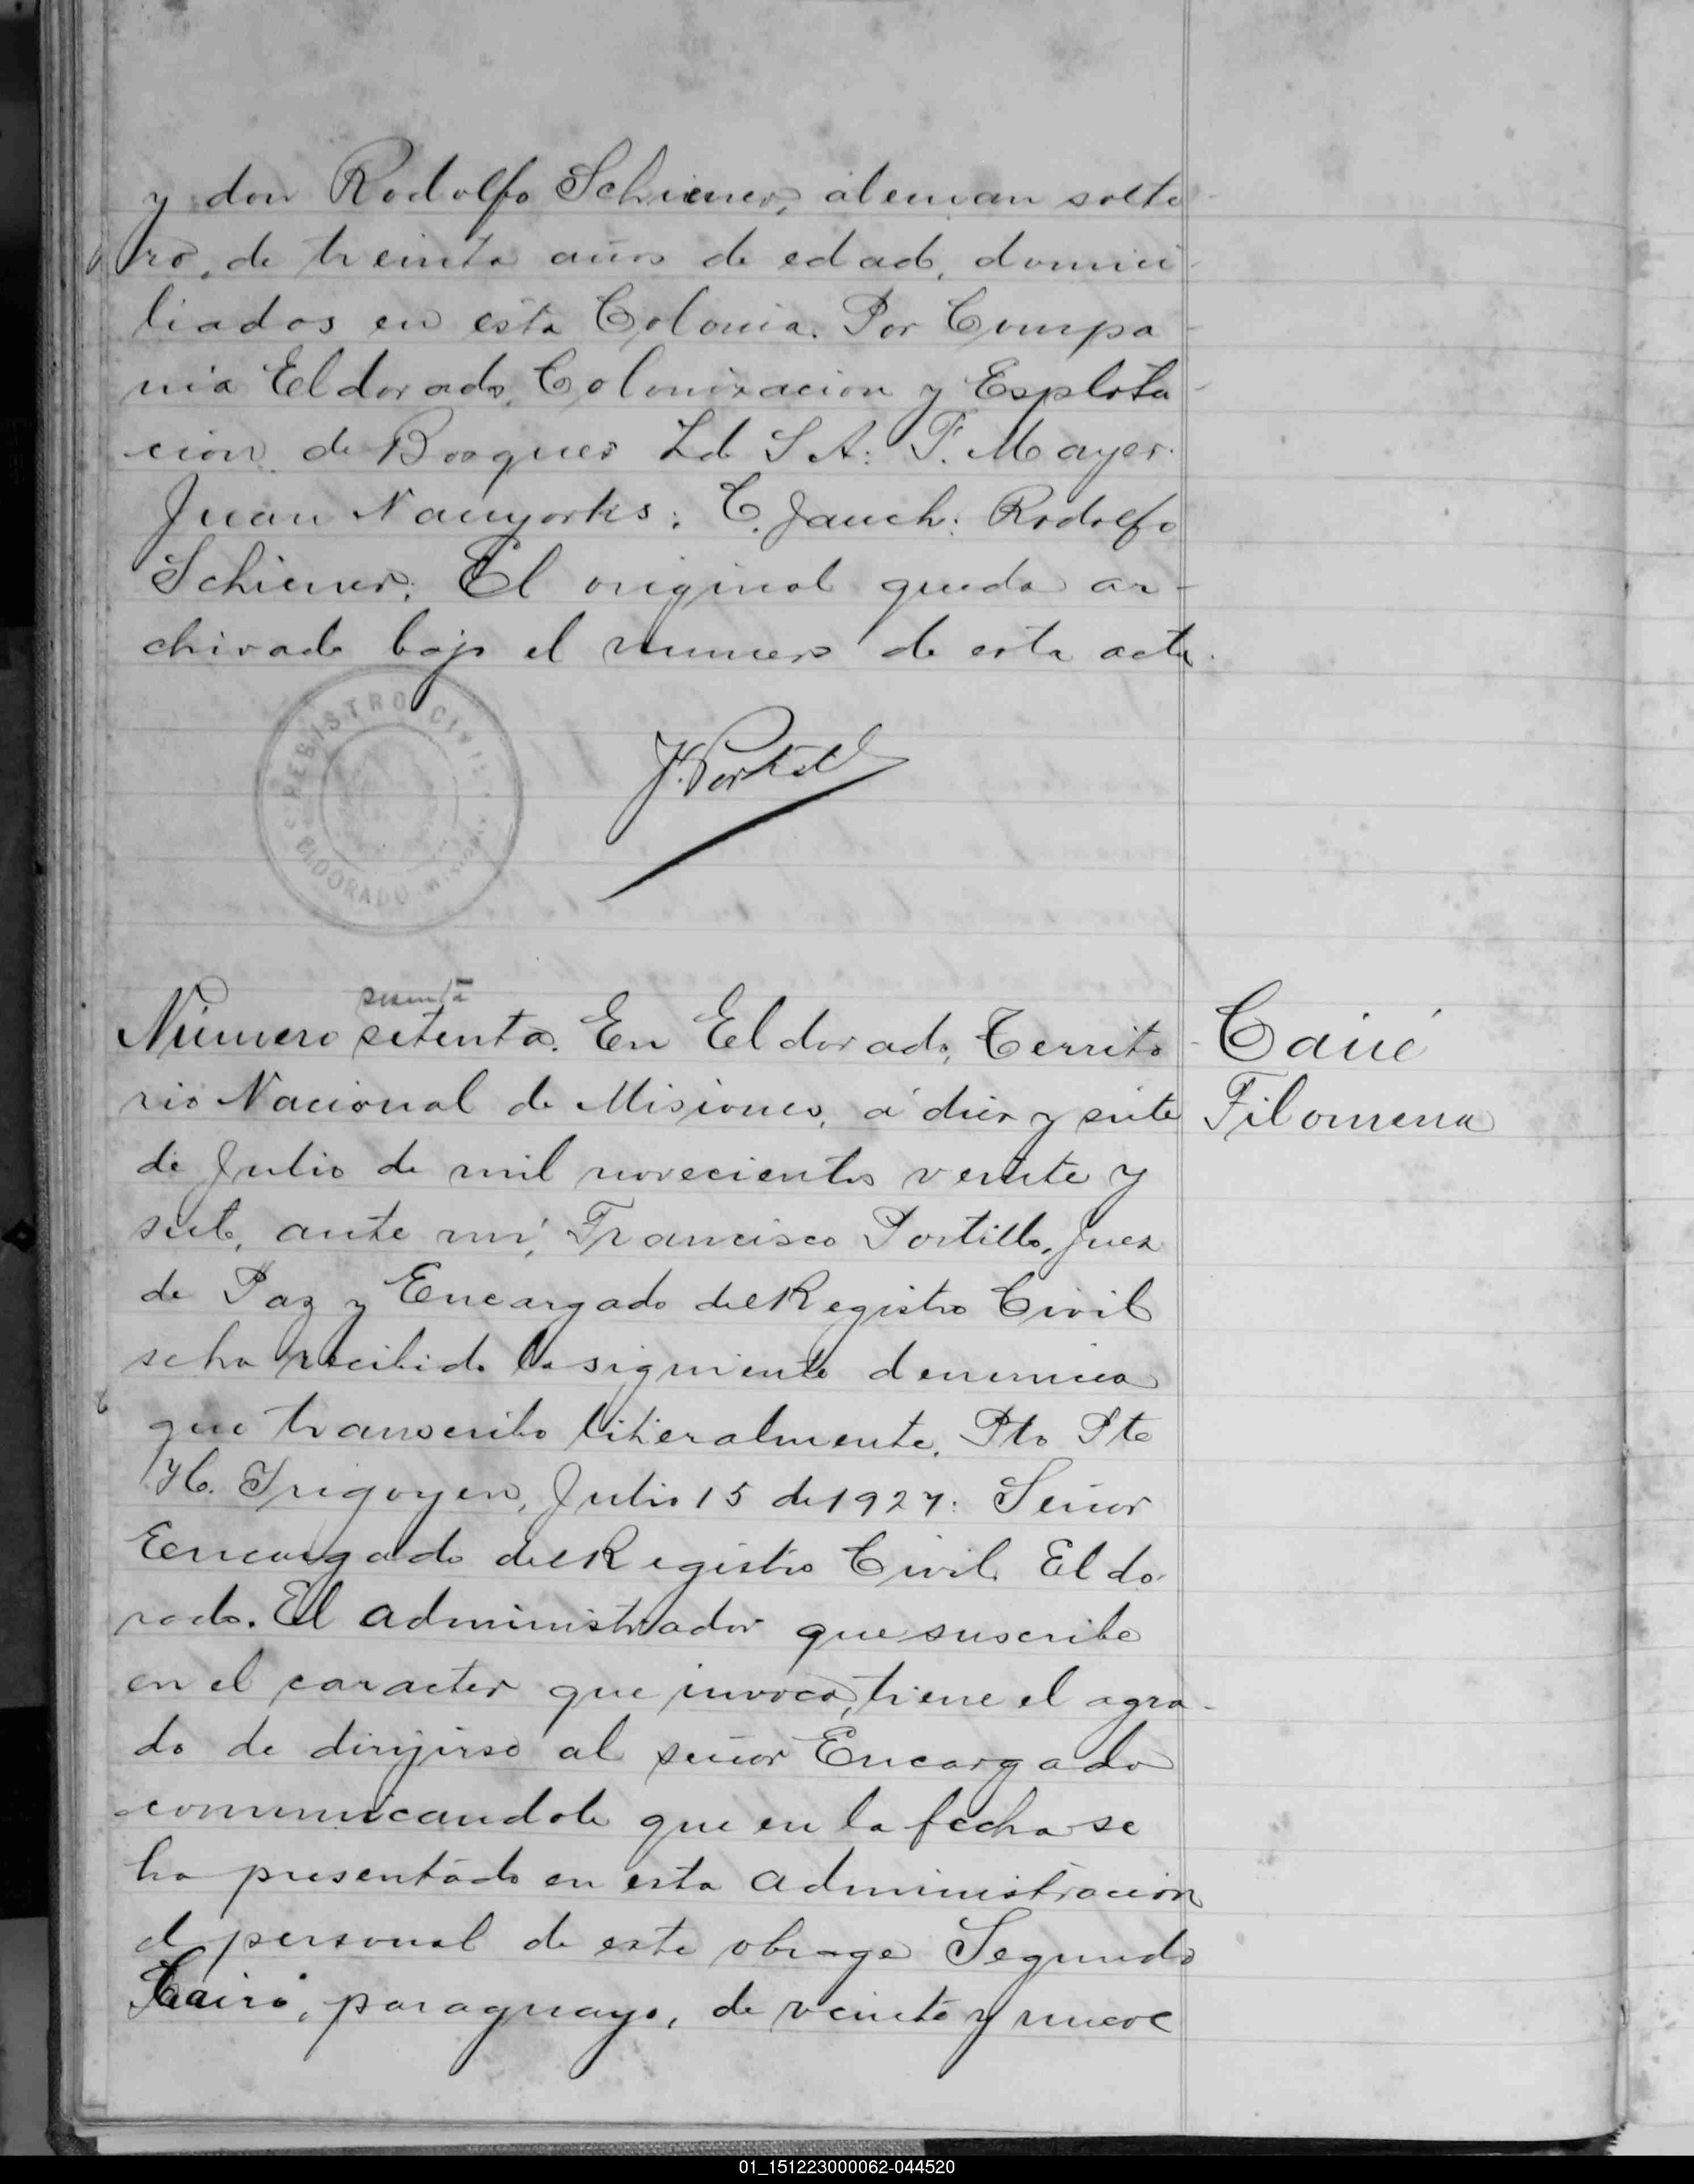 y don Rodolfo Schiener, aleman solte
ro, de treinta años de edad, domici
liados en esta Colonia. Por Compa
nia Eldorado, Colonizacion y Esplota
cion de Bosques Ld S A: F. Mayer.
Juan : C. Jauch: Rodolfo
Schiener. El original queda ar-
chivado bajo el numero de esta acta.
REGISTRO CIVIL
ELDORADO
sesenta
Número setenta. En Eldorado, Territo
rio Nacional de Misiones, á diez y siete
de Julio de mil novecientos veinte y
siete, ante mi, Francisco Portillo, Juez
de Paz y Encargado del Registro Civil
se ha recibido la siguiente denuncia
que transcribo literalmente. Pto Pte
H. Irigoyen, Julio 15 de 1927: Señor
Encargado del Registro Civil Eldo
rado. El administrador que suscribe
en el caracter que invoca, tiene el agra-
do de dirijirse al señor Encargado
comunicandole que en la fecha se
ha presentado en esta administracion
el personal de este obrage Segundo
paraguayo, de veinte y nueve
Cairé
Filomena
01_151223000062-044520